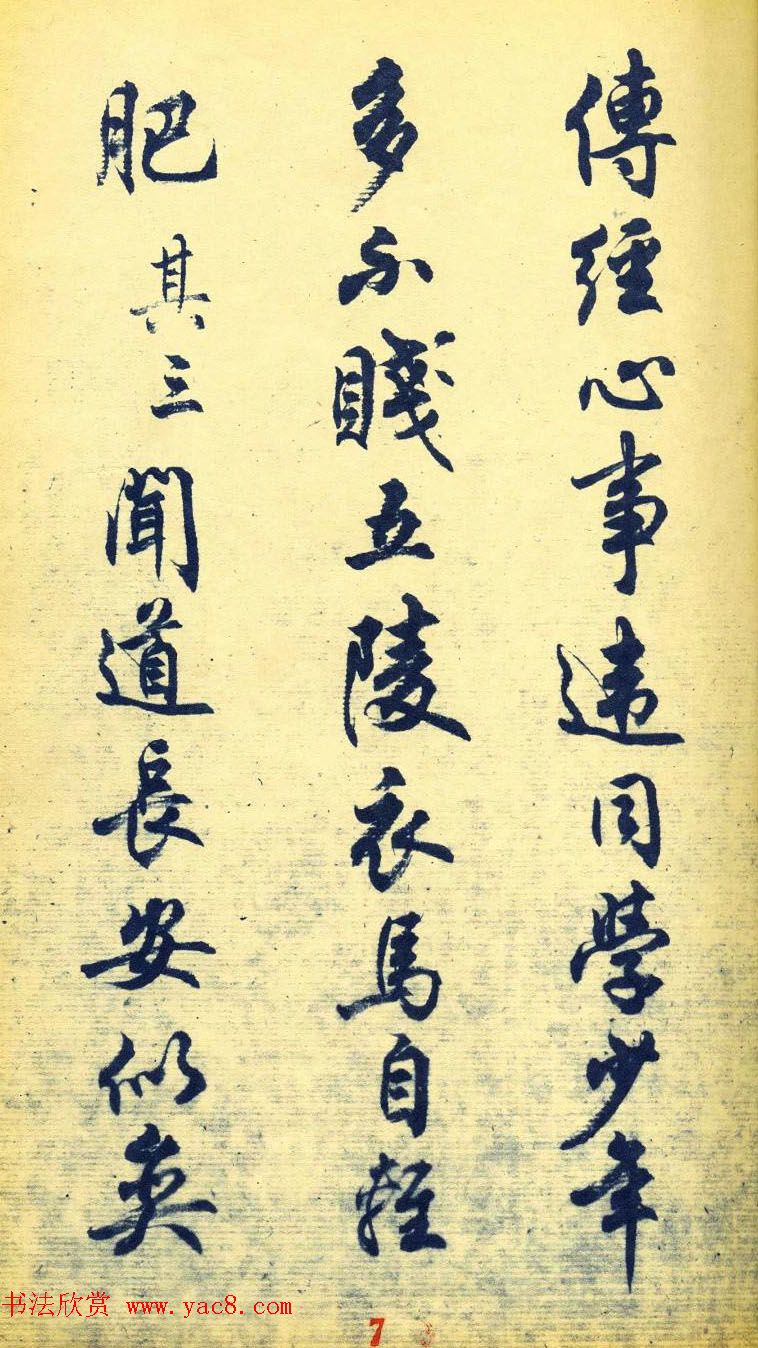 傳經心事違同學少年
多不賤五陵衣馬自輕
肥其三聞道長安似奕
书法欣赏 www.yac8.com
7